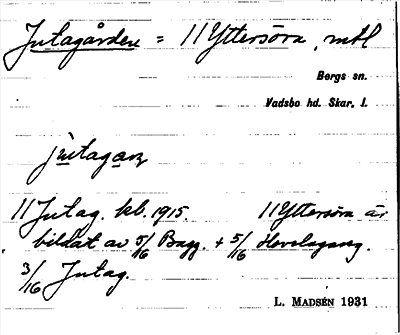 Jutagården = 11 Yttersöra, mtl
Bergs sn.
Vadsbo hd. Skar. l.
jutagaɳ
11 Jutag. kb. 1915. 11 Yttersöra är
bildat av 5/6 Bagg. + 5/16
3/16 Jutag.
L. MADSÉN 1931